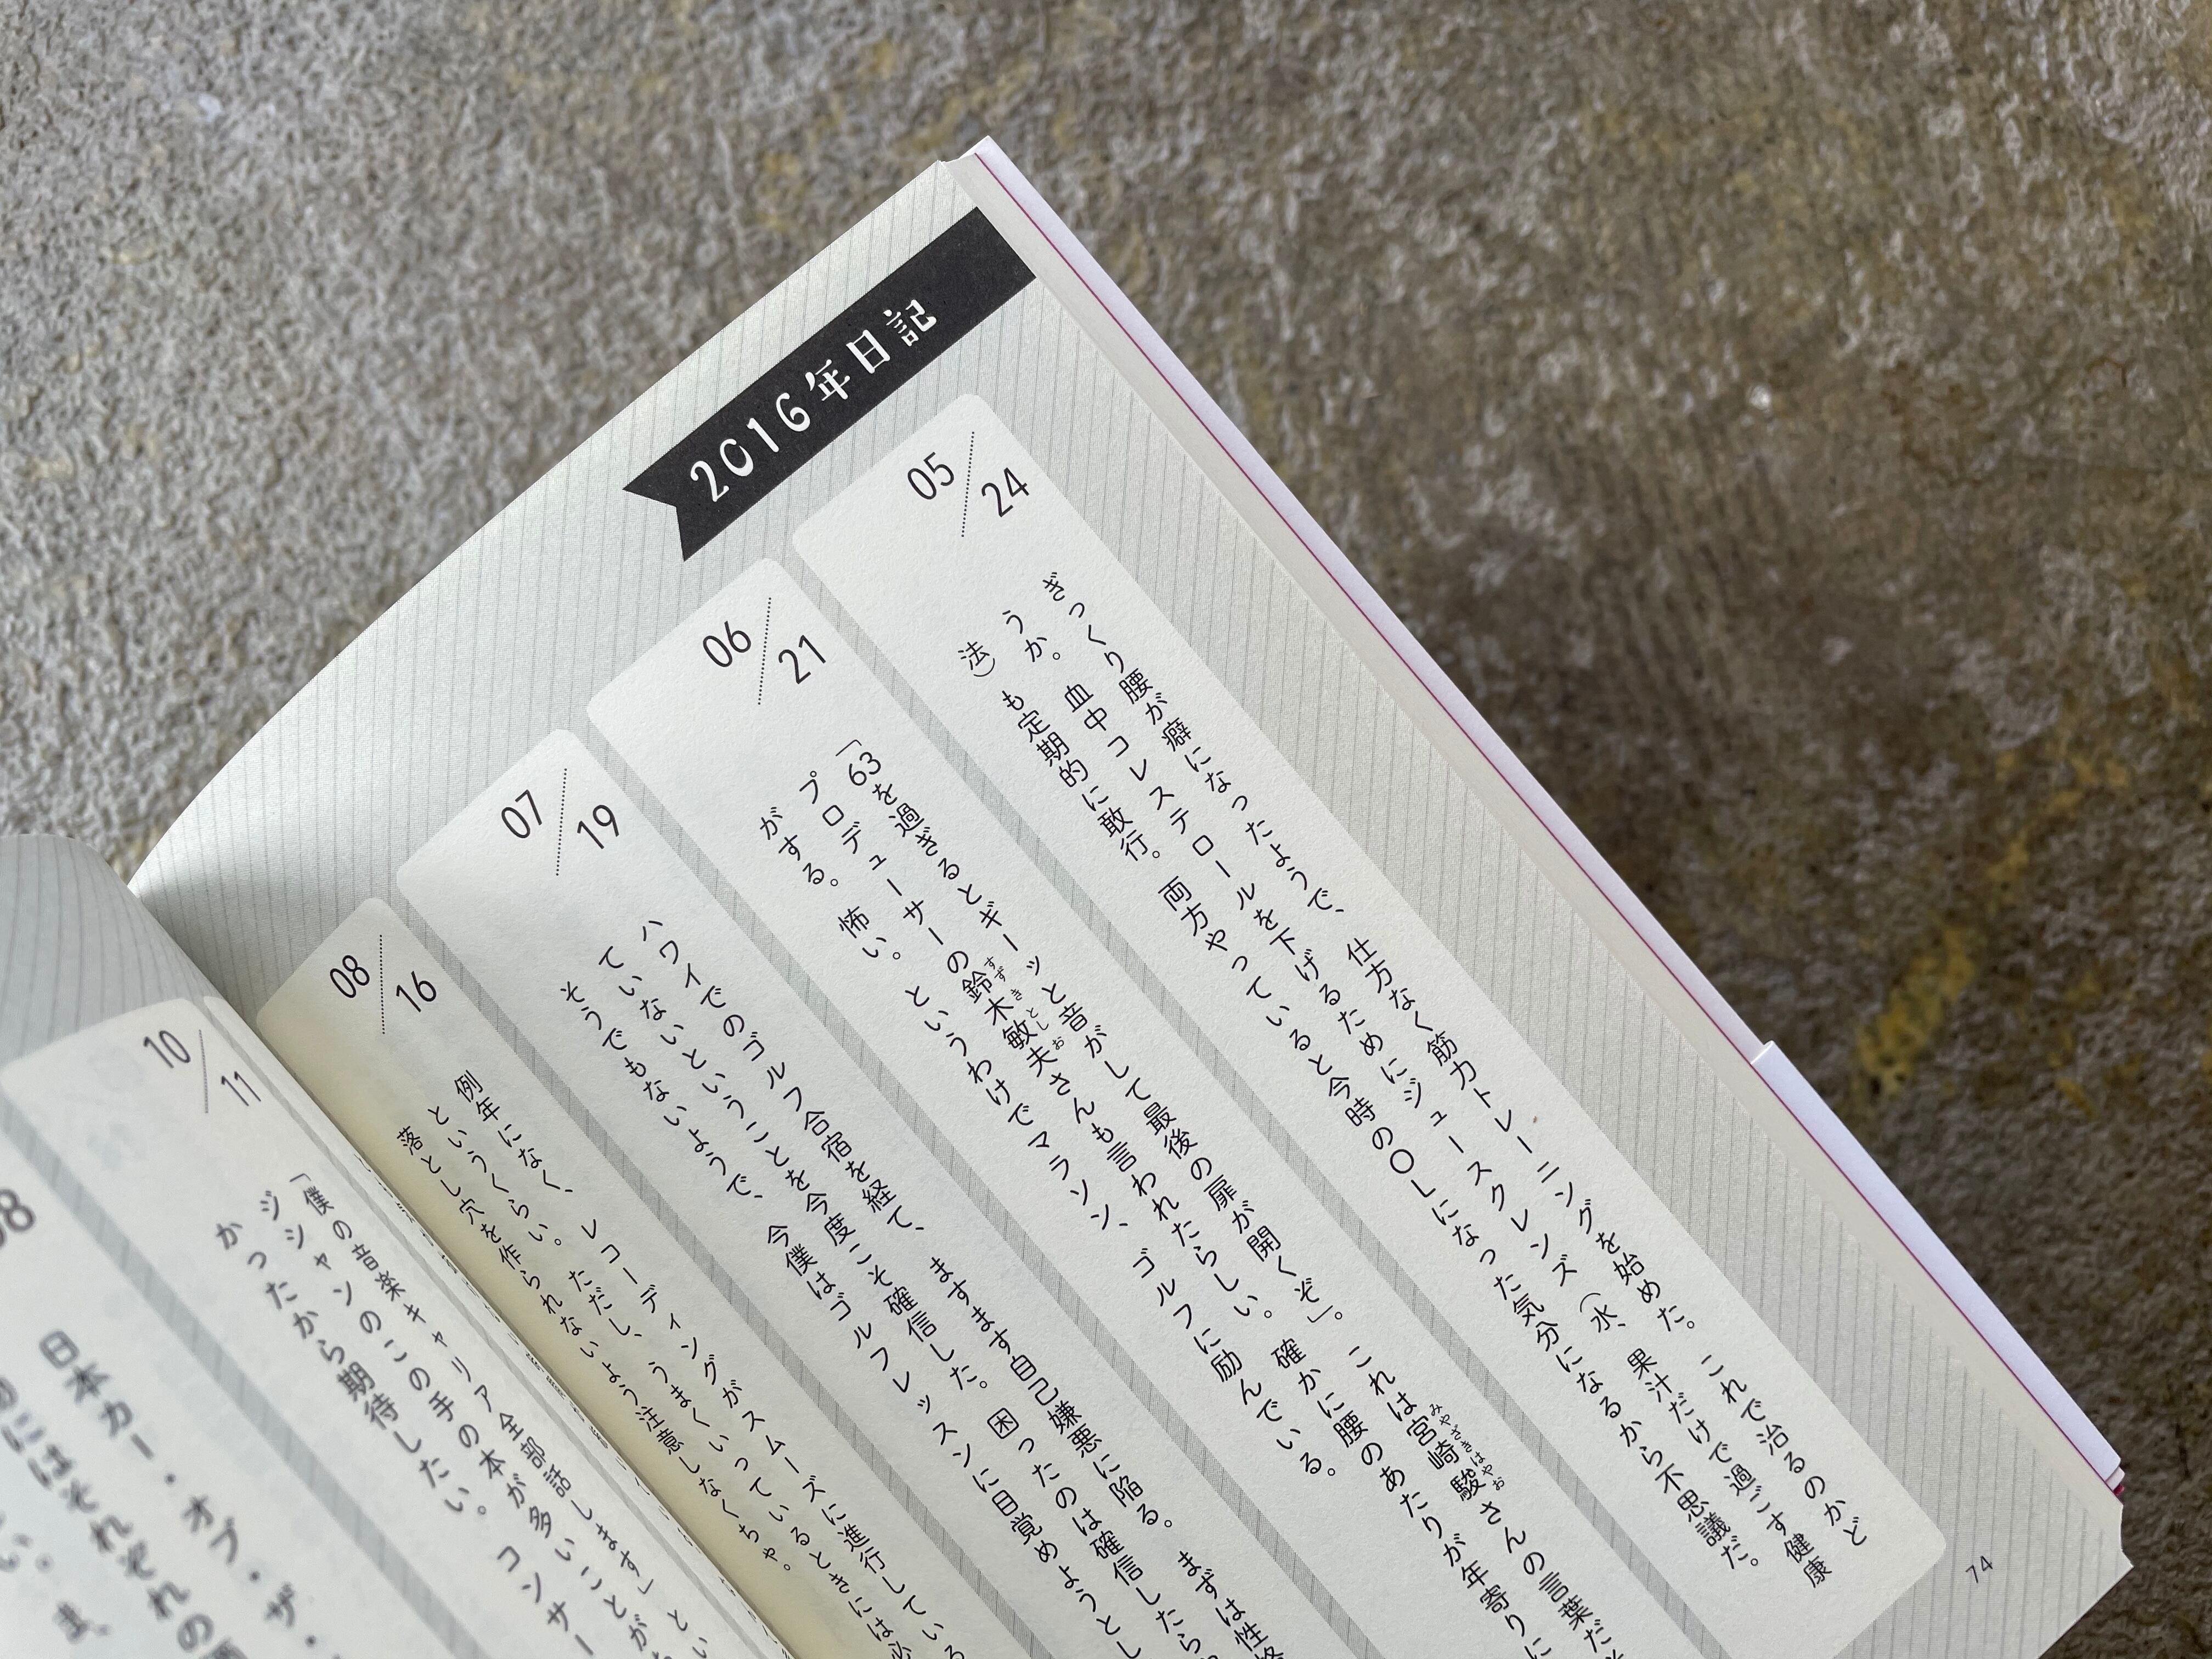 2016年日記
05/24
ぎっくり腰が癖になったようで、仕方なく筋力トレーニングを始めた。これで治るのかど
うか。血中コレステロールを下げるためにジュースクレンズ（水、果汁だけで過ごす健康
法）も定期的に敢行。両方やっていると今時の〇Lになった気分になるから不思議だ。
06/21
「63を過ぎるとギーッと音がして最後の扉が開くぞ」。これは宮崎駿さんの言葉だ
みやざきはやお
プロデューサーの鈴木敏夫さんも言われたらしい。確かに腰のあたりが年寄りに
すずきとしお
がする。怖い。というわけでマラソン、ゴルフに励んでいる。
07/19
ハワイでのゴルフ合宿を経て、ますます自己嫌悪に陥る。まずは性格
ていないということを今度こそ確信した。困ったのは確信したら
そうでもないようで、今僕はゴルフレッスンに目覚めようとし
08/16
例年になく、レコーディングがスムーズに進行している
というくらい。ただし、うまくいっているときには必
落とし穴を作られないよう注意しなくちゃ。
10/11
「僕の音楽キャリア全部話します」とい
ジシャンのこの手の本が多いことが
かったから期待したい。コンサー
08
日本カー・オブ・ザ・
にはそれぞれの
74